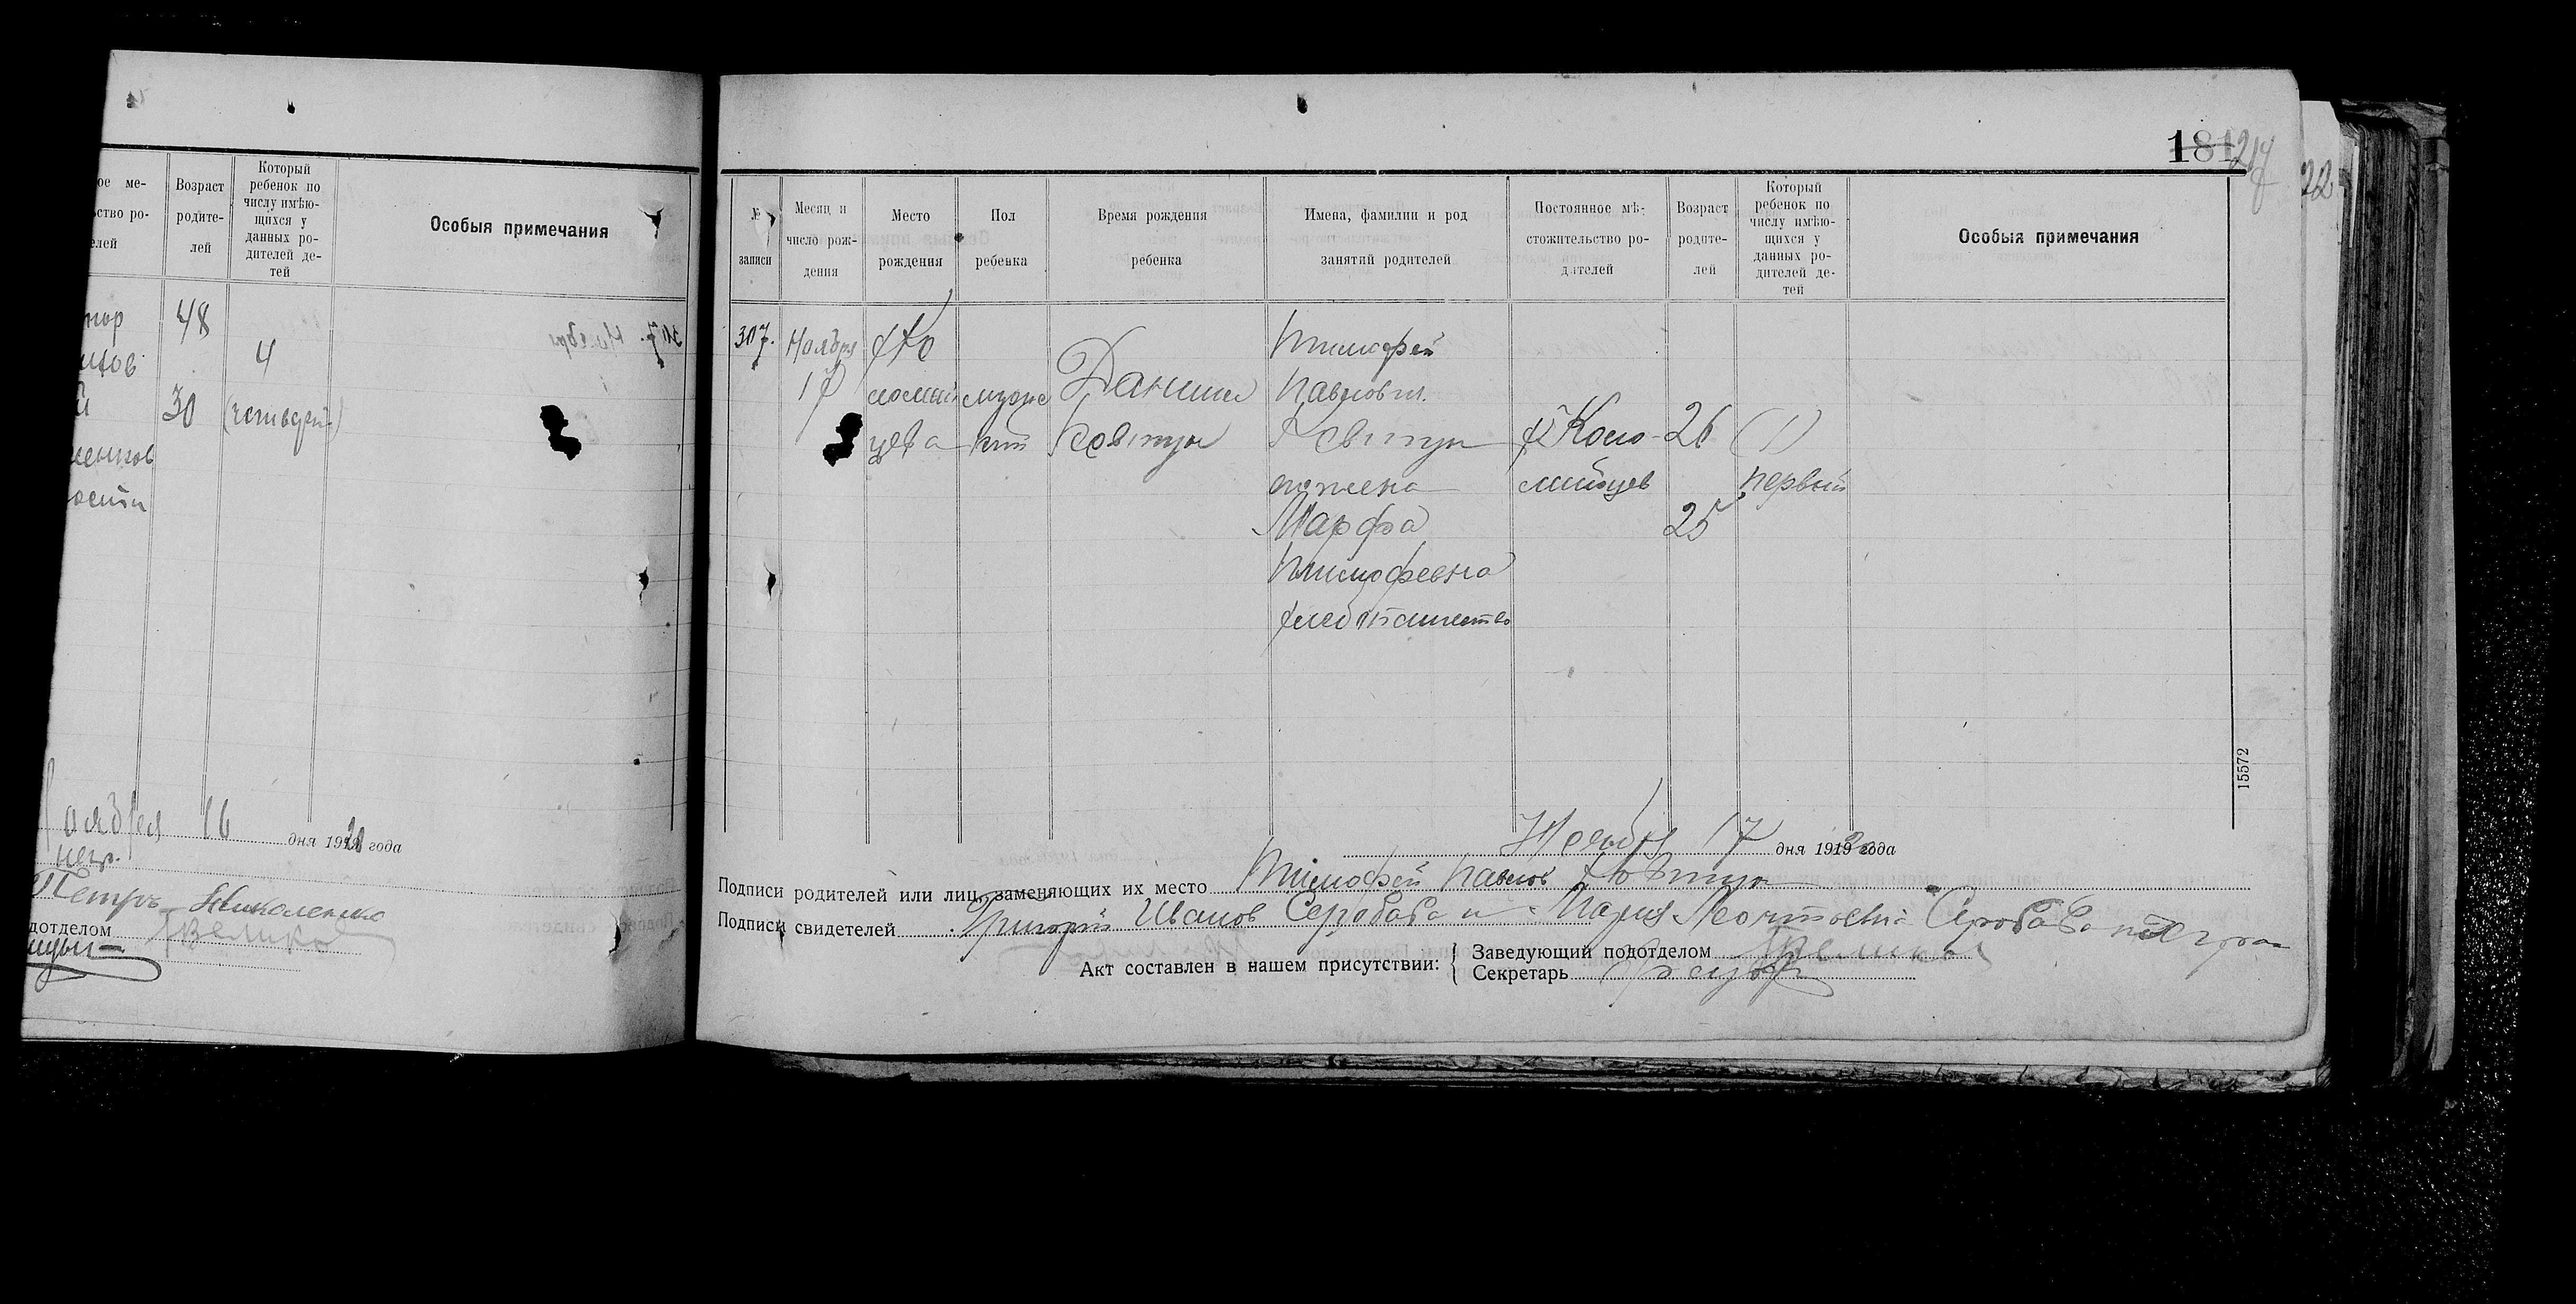 ое ме-
ство ро-
елей
Возраст
родите-
лей
Который
ребенок по
числу имѣю-
щихся у
данных ро-
дителей де-
тей
Особыя примечания
48
4
30
16 дня 1920 года
Петръ Николенко
дотделом
181
217
22
№
записи
Месяц и
число рож-
дения
Место
рождения
Пол
ребенка
Время рождения
ребенка
Имена, фамилии и род
занятий родителей
Постоянное мѣ-
стожительство ро-
дителей
Возраст
родите-
лей
Который
ребенок по
числу имѣю-
щихся у
данных ро-
дителей де-
тей
Особыя примечания
307.
Ноября
17
х Ко
ломий
цева
мужс
кит
Даниил
Тимофей
Павлович
его жена
Марфа
Тимофевна
хлебопашество
х Коло-
мийцев
26
25
(1)
первый
15572
Ноября 17 дня 1920 года
Подписи родителей или лиц, заменяющих их место Тимофей Павлов
Подписи свидетелей Григорій Иванов Серобаба и Мария Леонтьевна Серобаба
Акт составлен в нашем присутствии:
Заведующий подотделом
Секретарь